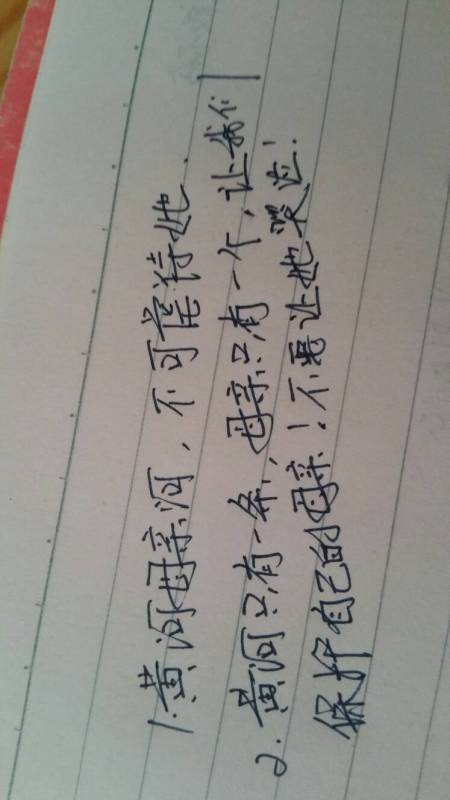 1.黄河母亲河，不可虐待她.
2.黄河只有一条，母亲只有一个，让我们
保护自己的母亲！不要让她哭泣！